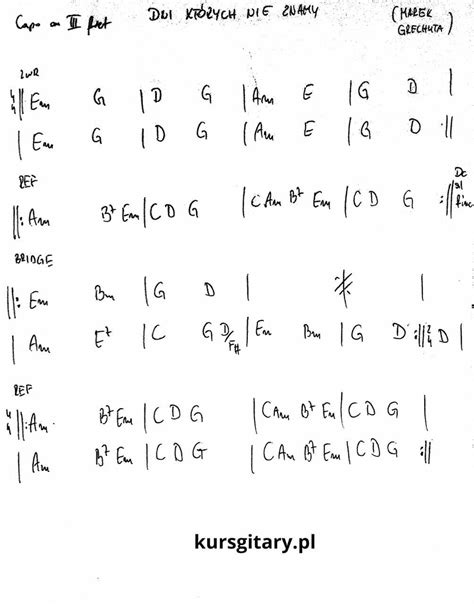 DNI KTÓRYCH NIE ZNAMY (MAREK GRECHUTA)
Capo on III fret
ZWR
4/4 ||: Em G | D G | Am E | G D |
| Em G | D G | Am E | G D :||
REF
||: Am B7 Em | C D G | C Am B7 Em | C D G :|| DC al fine
BRIDGE
||: Em Bm | G D | 𝄎 |
| Am E7 | C G D/F# | Em Bm | G D :|| 2/4 D |
REF
4/4 ||: Am B7 Em | C D G | C Am B7 Em | C D G |
| Am B7 Em | C D G | C Am B7 Em | C D G :||
kursgitary.pl